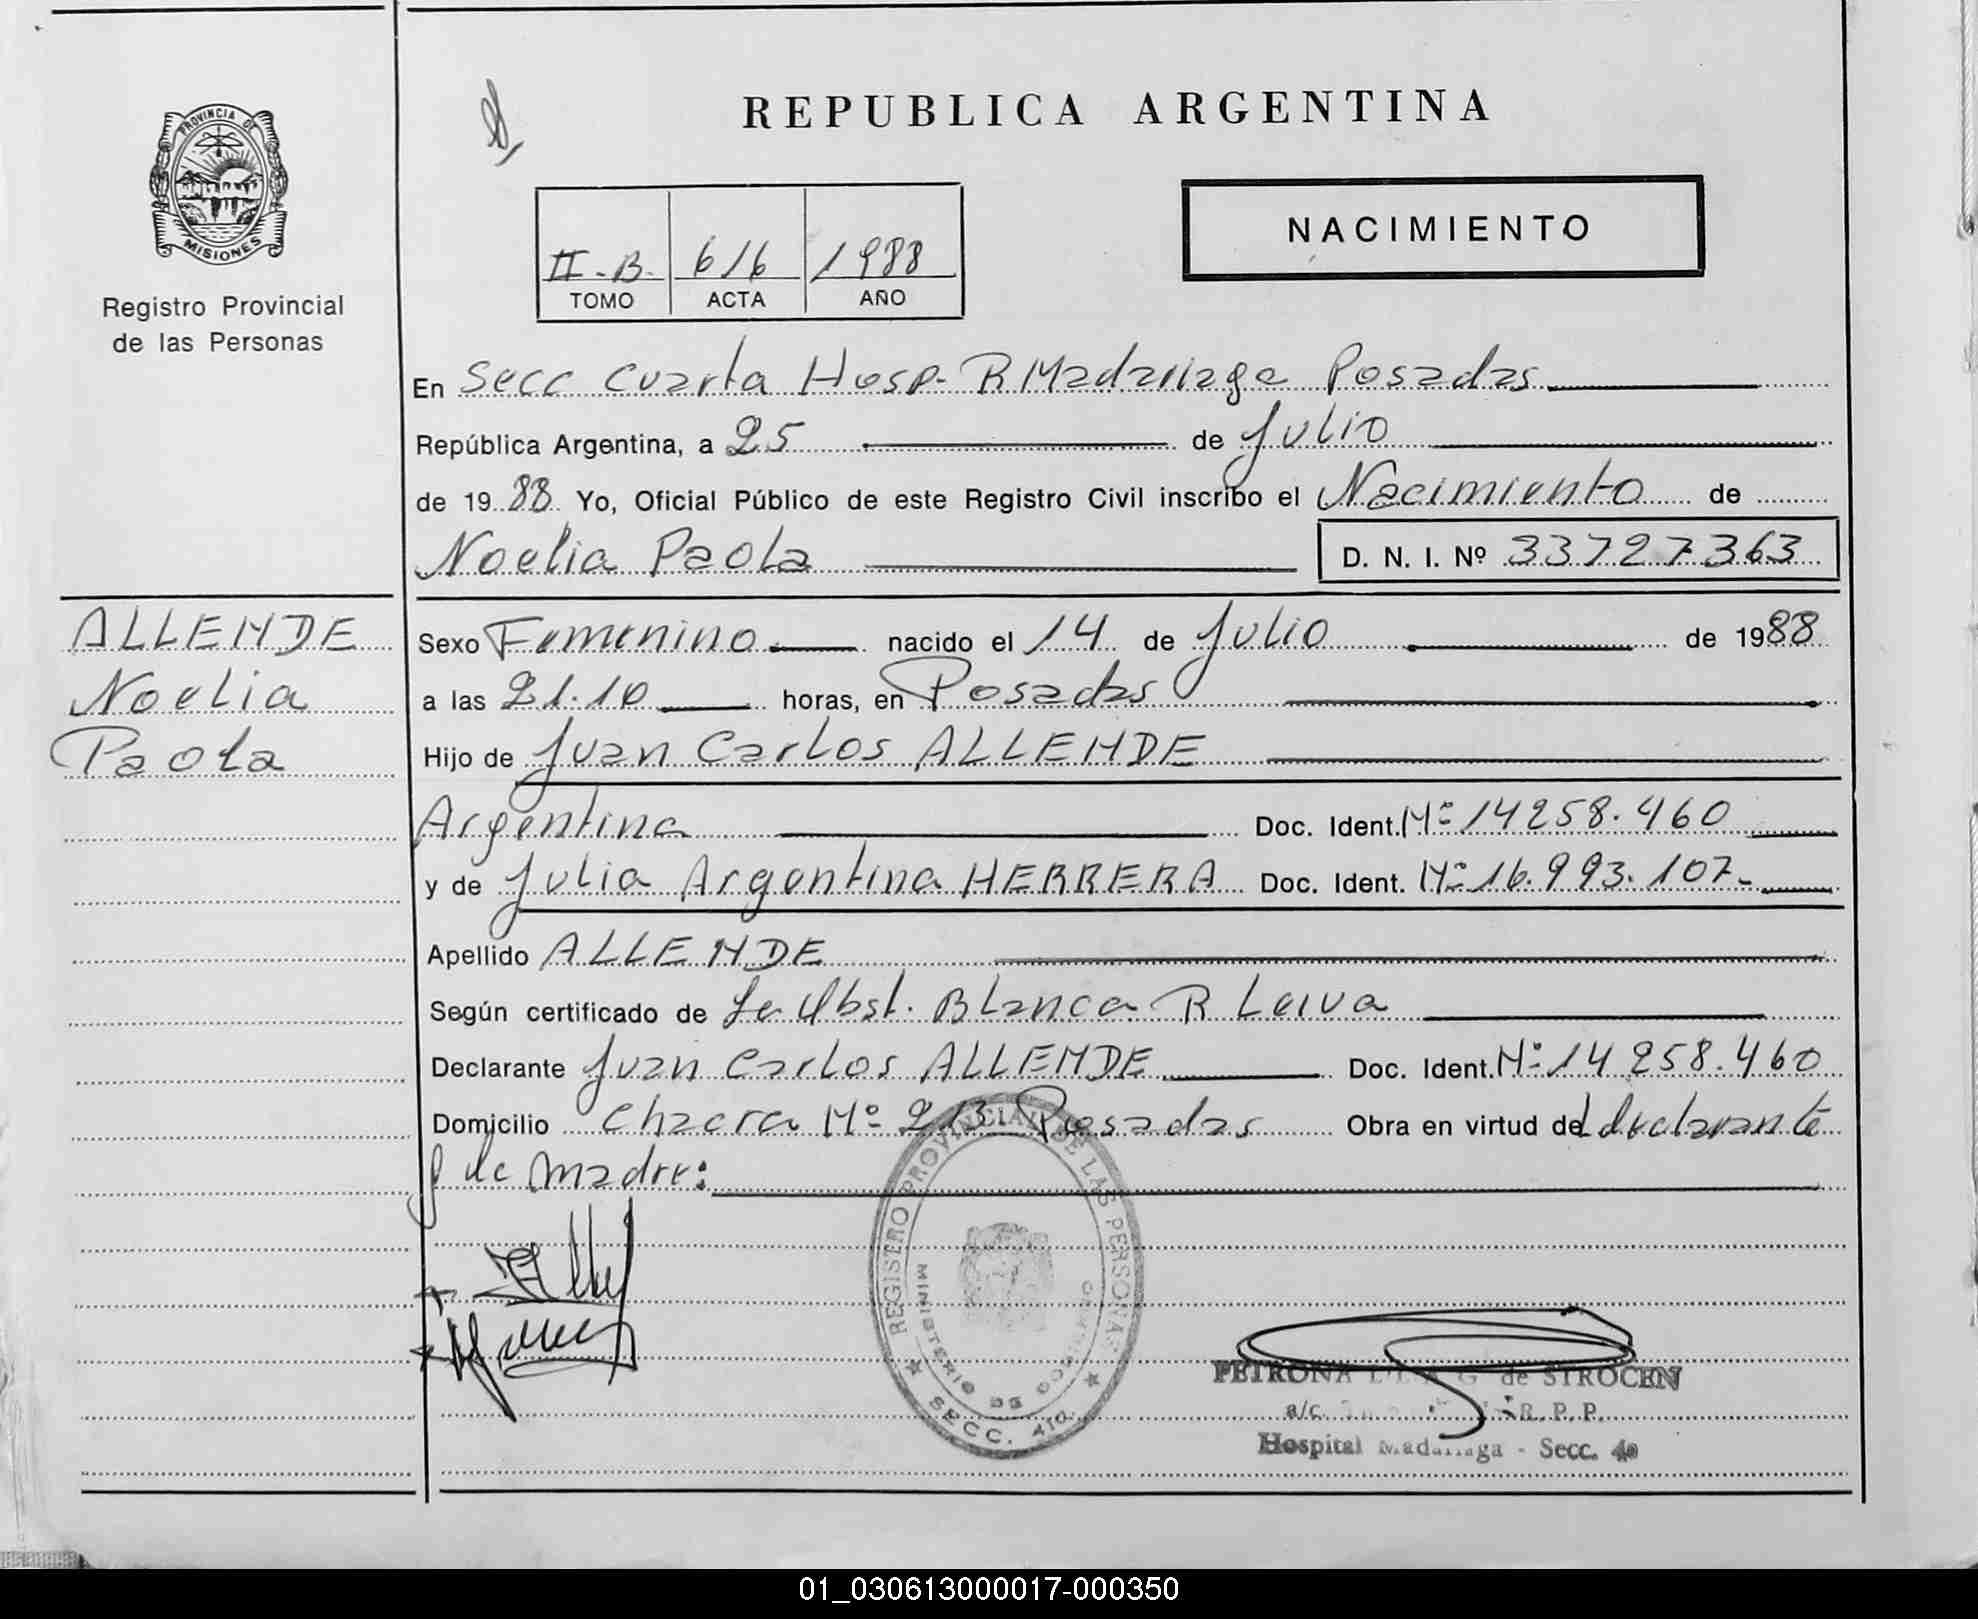 REPUBLICA ARGENTINA
PROVINCIA DE
MISIONES
Registro Provincial
de las Personas
II-B- 616 1988
TOMO ACTA AÑO
NACIMIENTO
En Secc Cuarta Hosp. R Madariaga Posadas
República Argentina, a 25 de Julio
de 1988 Yo, Oficial Público de este Registro Civil inscribo el Nacimiento de
Noelia Paola D. N. I. Nº 33727363
ALLENDE
Noelia
Paola
Sexo Femenino nacido el 14 de Julio de 1988
a las 21.10 horas, en Posadas
Hijo de Juan Carlos ALLENDE
Argentina Doc. Ident. Nº 14258.460
y de Julia Argentina HERRERA Doc. Ident. Nº 16.993.107-
Apellido ALLENDE
Según certificado de La Obst. Blanca R Leiva
Declarante Juan Carlos ALLENDE Doc. Ident. Nº 14258.460
Domicilio Chacra Nº 213 Posadas Obra en virtud del declarante
y la madre:
REGISTRO PROVINCIAL DE LAS PERSONAS
MINISTERIO DE GOBIERNO
SECC. 4TO.
PETRONA G. de SIROCEN
a/c. R. P. P.
Hospital Madariaga - Secc. 4a
01_030613000017-000350